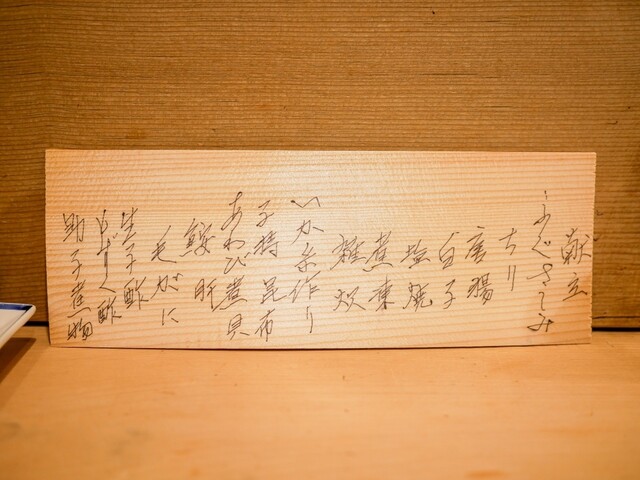 献立
ふぐさしみ
ちり
唐揚
白子
塩焼
煮凍
雑炊
いか糸作り
子持昆布
あわび煮貝
鮟肝
毛がに
生子酢
もずく酢
助子煮物